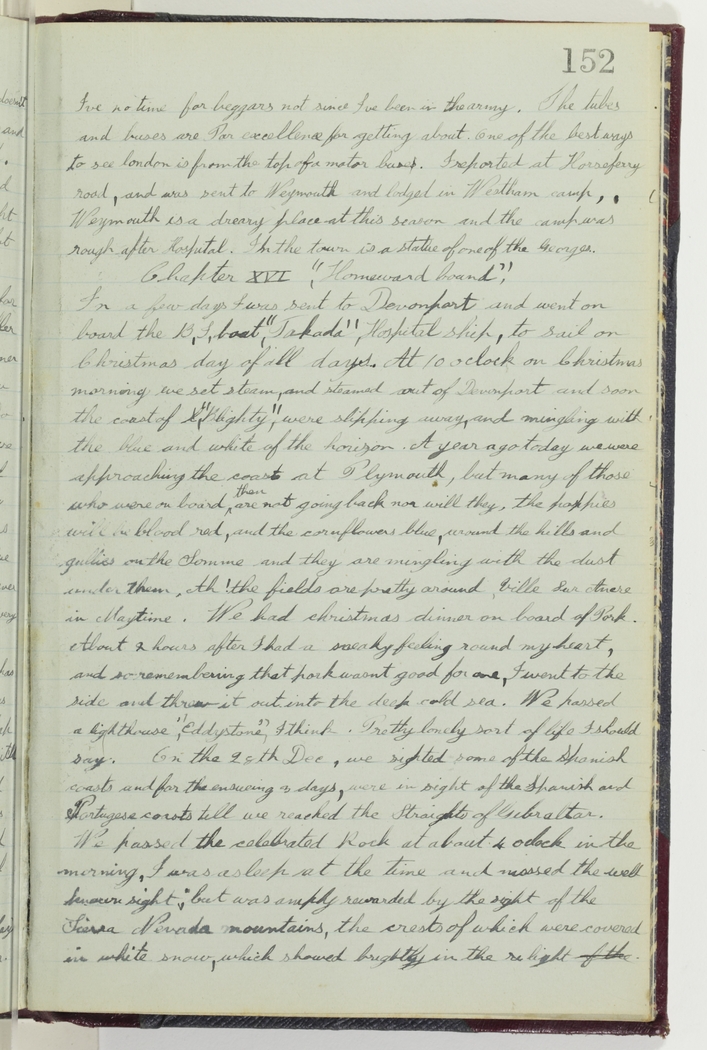 152
I've no time for beggars not since I've been in the army. The tubes
and buses are Par excellence for getting about. One of the best ways
to see london is from the top of a motor buses. I reported at Horseferry
road, and was sent to Weymouth and lodged in Westham camp,
Weymouth is a dreary place at this season and the camp was
rough after Hospital. In the town is a statue of one of the Georges.
Chapter XVI "Homeward bound".
In a few days I was sent to Devonport and went on
board the B,I, boat "Takada" Hospital ship, to sail on
Christmas day of all days. At 10 oclock on Christmas
morning we set steam, and steamed out of Devonport and soon
the coast of "Blighty", were slipping away, and mingling with
the blue and white of the horizon. A year ago today we were
approaching the coast at Plymouth, but many of those
who were on board, then are not going back nor will they, the poppies
will be blood red, and the cornflowers blue, around the hills and
gullies on the Somme and they are mingling with the dust
under them, Ah! the fields are pretty around, Ville Sur Ancre
in Maytime. We had christmas dinner on board of Pork.
About 2 hours after I had a sneaky feeling round my heart,
and so remembering that pork wasnt good for one, I went to the
side and threw it out into the deep cold sea. We passed
a lighthouse, "Eddystone", I think. Pretty lonely sort of life I should
say. On the 28th Dec, we sighted some of the Spanish
coasts and for the ensueing 3 days, were in sight of the Spanish and
Portugese coasts till we reached the Straights of Gibraltar.
We passed the celebrated Rock at about 4 oclock in the
morning, I was asleep at the time and missed the well
known sight; but was amply rewarded by the sight of the
Sierra Nevada mountains, the crests of which were covered
in white snow, which showed brightly in the light of the